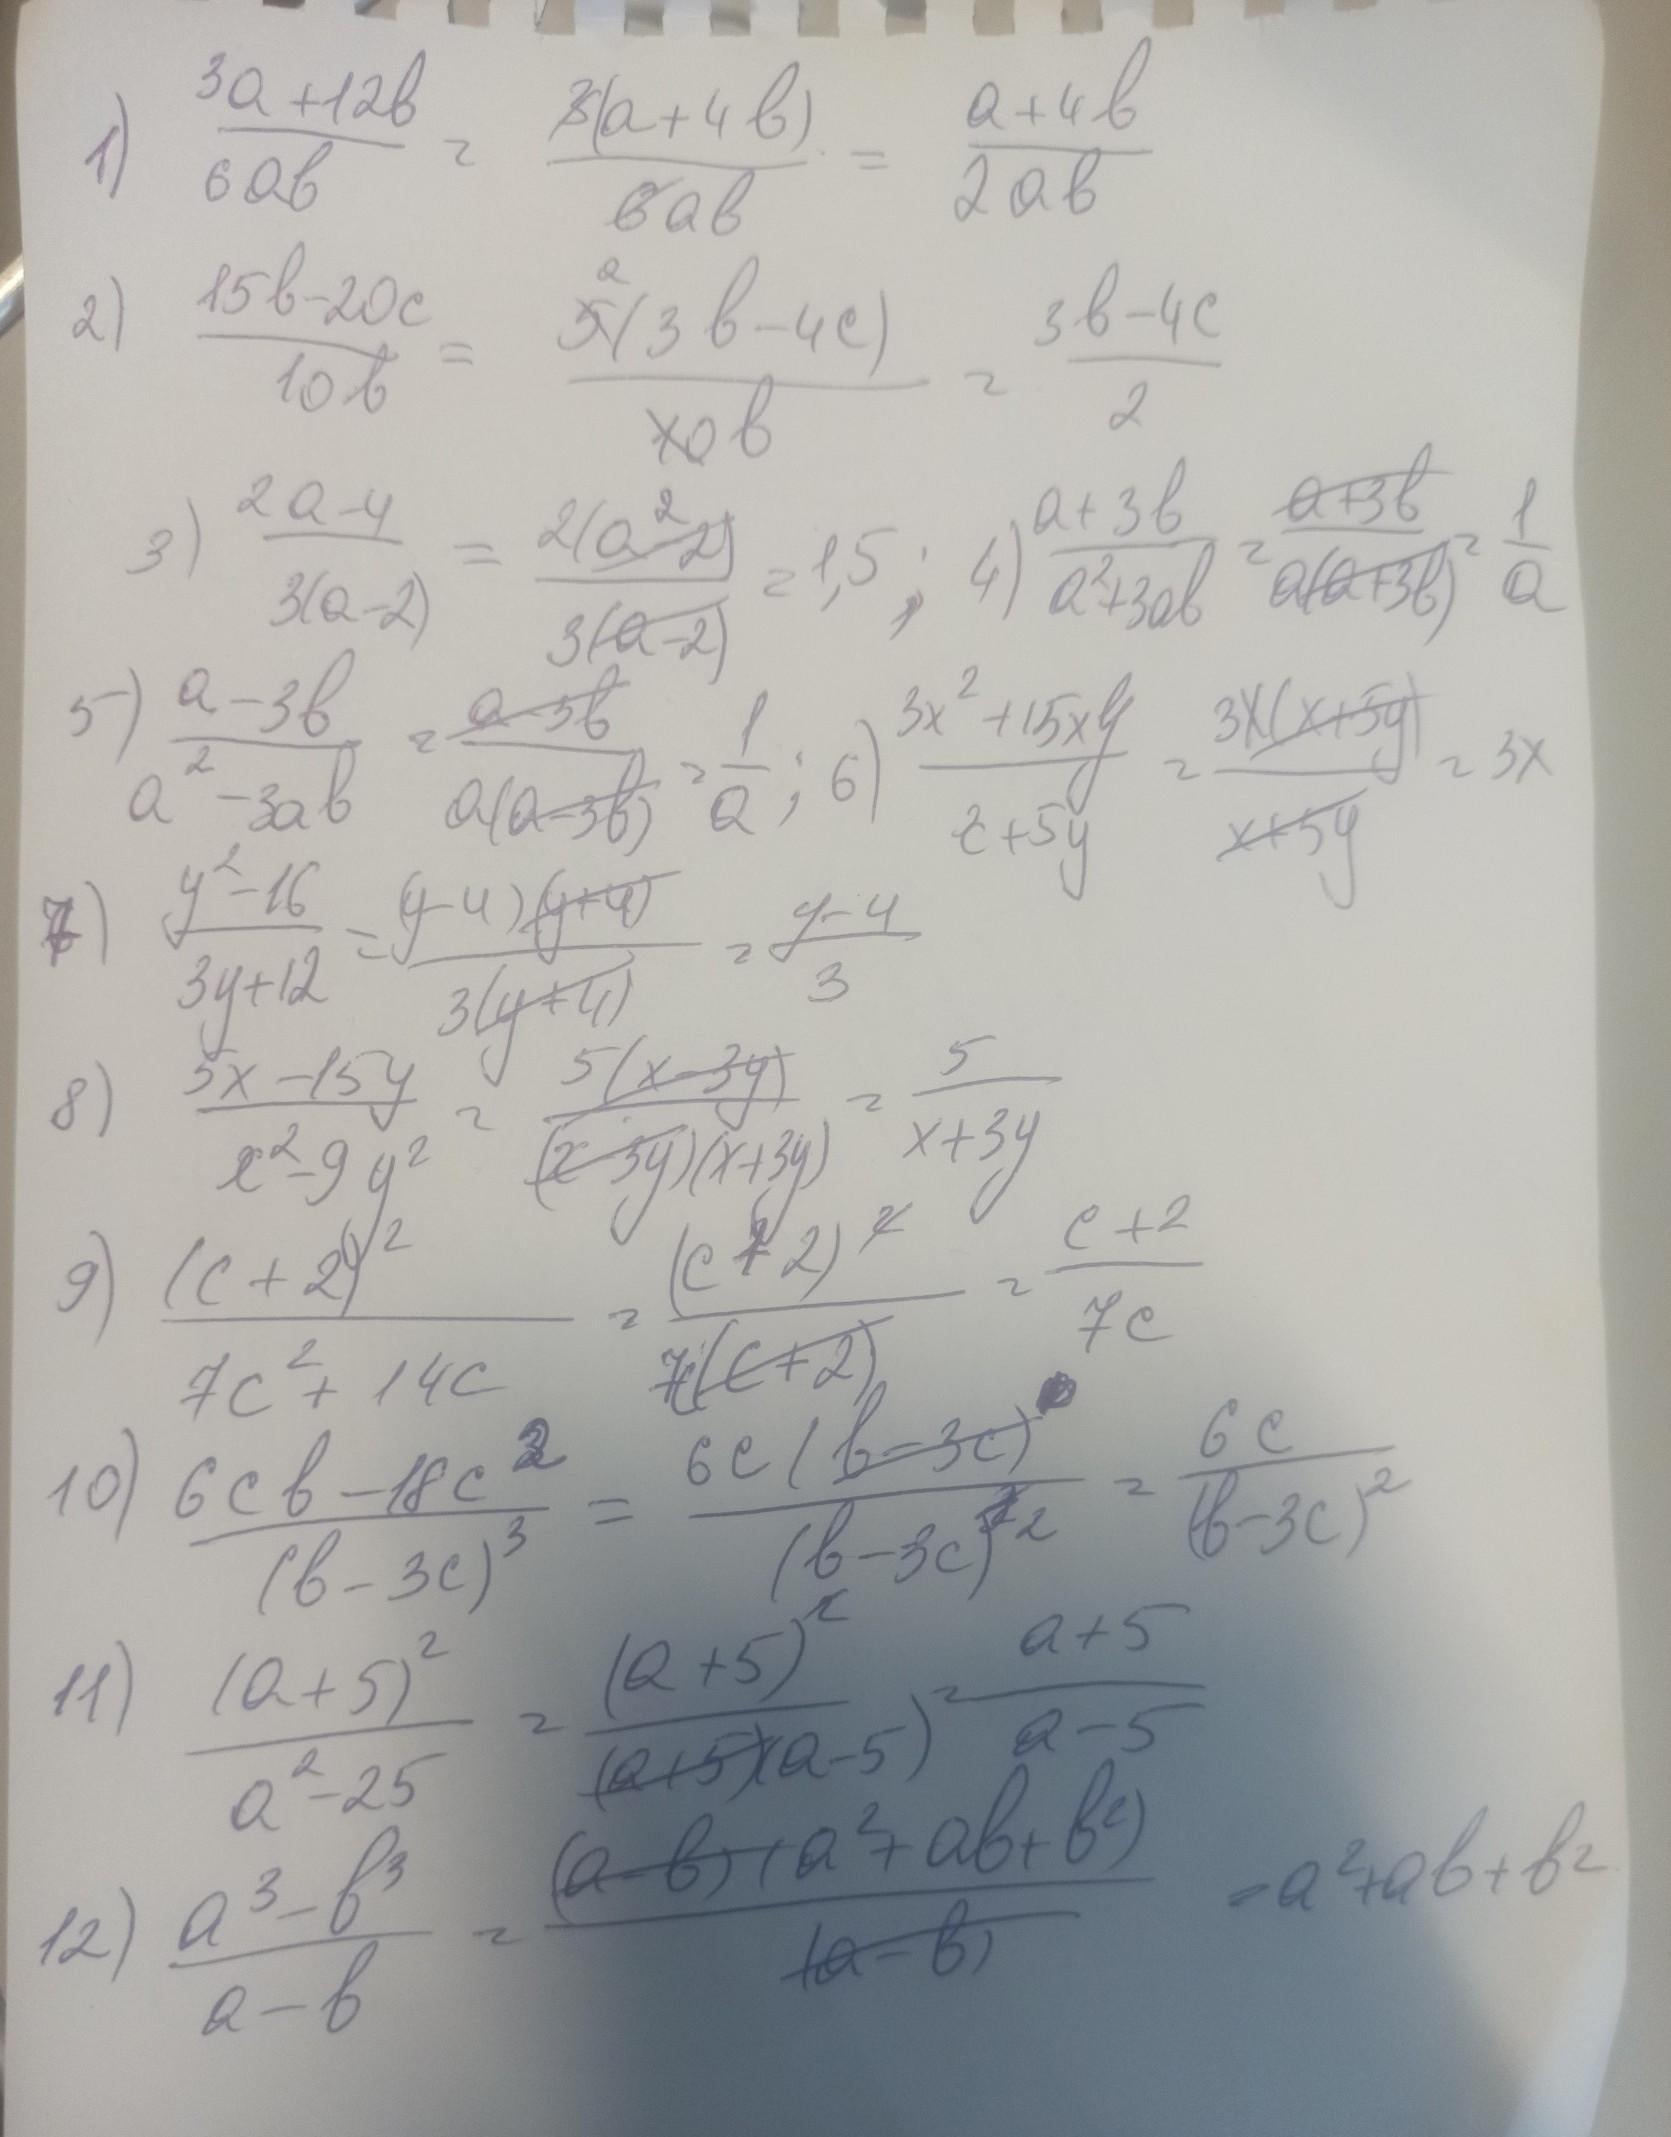 1) (3a+12b)/(6ab) = (3(a+4b))/(6ab) = (a+4b)/(2ab)
2) (15b-20c)/(10b) = (5(3b-4c))/(10b) = (3b-4c)/2
3) (2a-4)/(3(a-2)) = (2(a-2))/(3(a-2)) = 1,5 ; 4) (a+3b)/(a²+3ab) = (a+3b)/(a(a+3b)) = 1/a
5) (a-3b)/(a²-3ab) = (a-3b)/(a(a-3b)) = 1/a ; 6) (3x²+15xy)/(x+5y) = (3x(x+5y))/(x+5y) = 3x
7) (y²-16)/(3y+12) = ((y-4)(y+4))/(3(y+4)) = (y-4)/3
8) (5x-15y)/(x²-9y²) = (5(x-3y))/((x-3y)(x+3y)) = 5/(x+3y)
9) (c+2)²/(7c²+14c) = (c+2)²/(7c(c+2)) = (c+2)/(7c)
10) (6cb-18c²)/(b-3c)³ = (6c(b-3c))/(b-3c)² = (6c)/(b-3c)²
11) (a+5)²/(a²-25) = (a+5)²/((a+5)(a-5)) = (a+5)/(a-5)
12) (a³-b³)/(a-b) = ((a-b)(a²+ab+b²))/(a-b) = a²+ab+b²